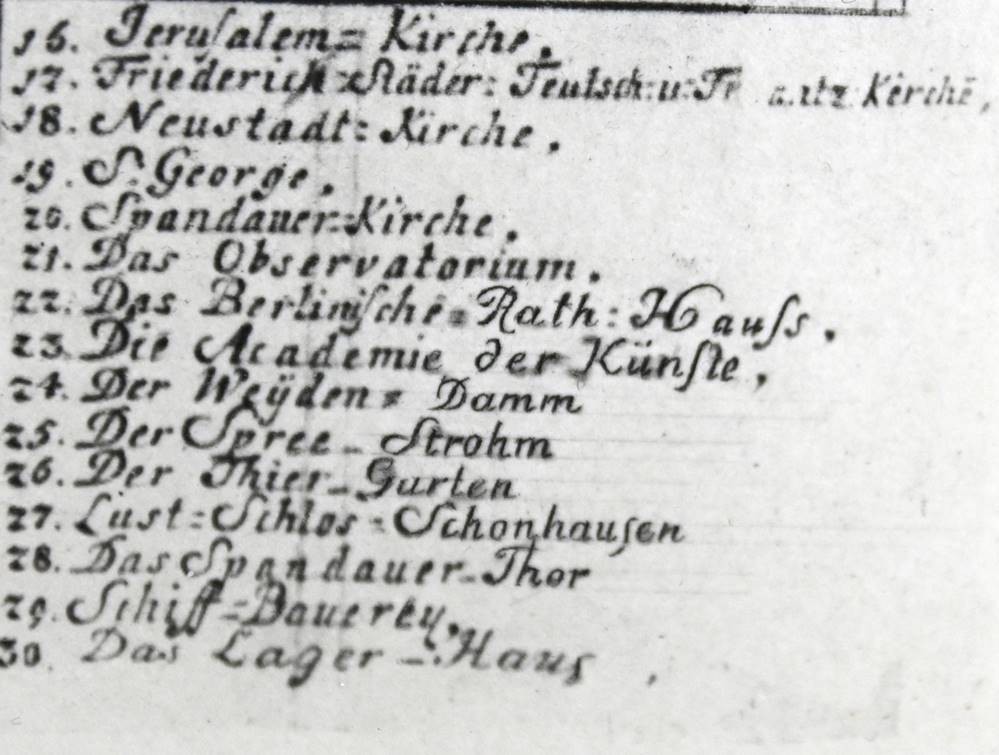 16. Jeruſalem= Kirche.
17. Friederich=Städer: Teutsch: u: Fr antz Kerchē,
18. Neustadt: Kirche.
19. S. George.
20. Spandauer=Kirche.
21. Das Observatorium.
22. Das Berliniſche=Rath: Hauſs.
23. Die Academie der Künſte,
24. Der Weÿden= Damm
25. Der Spree - Strohm
26. Der Thier-Garten
27. Lust=Schlos=Schonhauſen
28. Das Spandauer-Thor
29. Schiff=Bauerey.
30. Das Lager-Haus